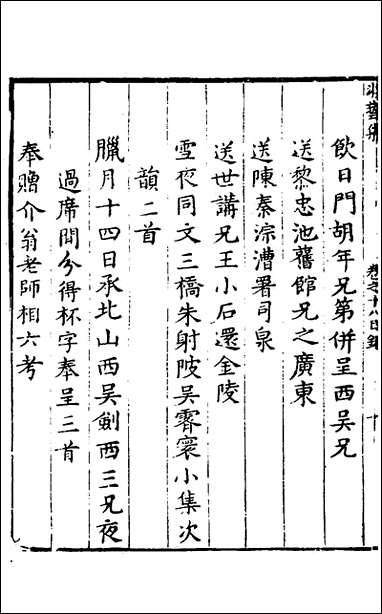 飲日門胡年兄第併呈西吴兄
送黎忠池舊館兄之廣東
送陳秦淙漕署司泉
送世講兄王小石還金陵
雪夜同文三橋朱射陂吴霽寰小集次
韻二首
臘月十四日承北山西吴劍西三兄夜
過席間分得杯字奉呈三首
奉贈介翁老師相六考